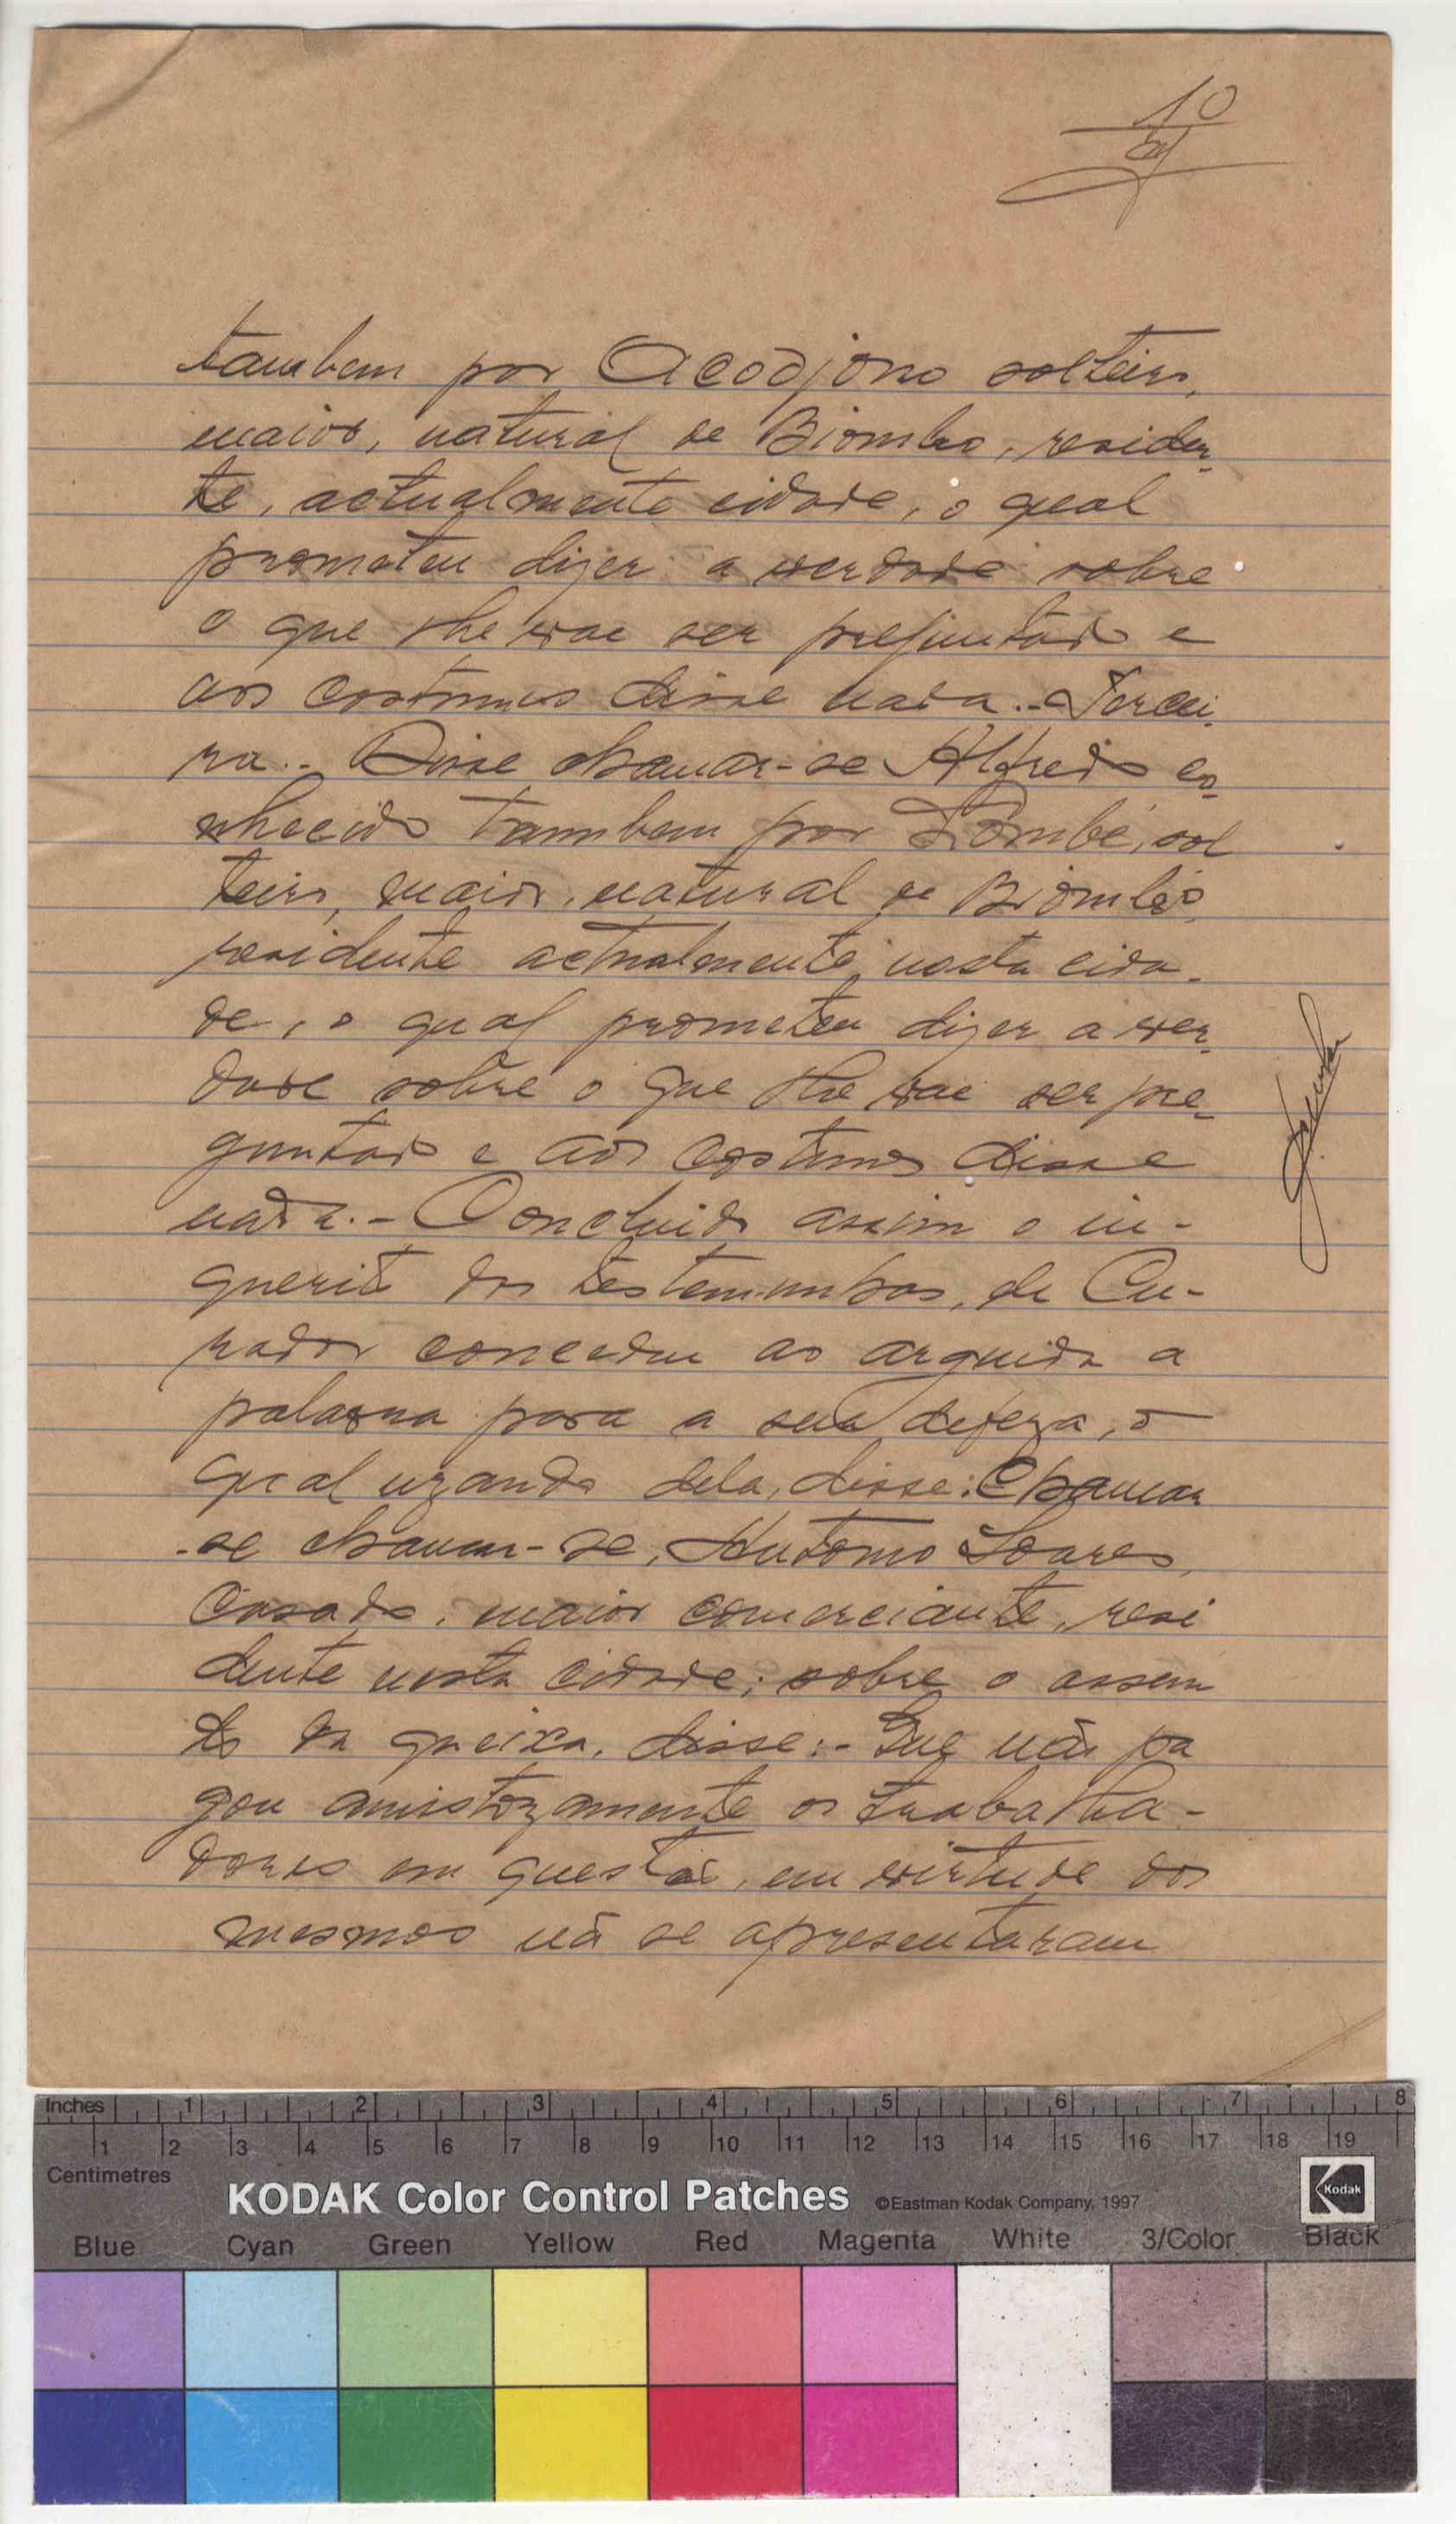 10
tambem por Acodjono solteiro,
maior, natural de Biombo, residen-
te, actualmente cidade, o qual
prometeu dizer a verdade sobre
o que lhe vae ser preguntado e
aos costumes disse nada.- Tercei-
ra.- Disse chamar-se Alfredo co-
nhecido tambem por Tombé, sol
teiro, maior, natural de Biombo,
residente actualmente nesta cida-
de, o qual prometeu dizer a ver-
dade sobre o que lhe vae ser pre-
guntado e aos costumes disse
nada.- Concluido assim o in-
querito das testemunhas, de Cu-
rador concedeu ao arguido a
palavra para a sua defeza, o
qual uzando dela, disse: Chamar
-se chamar-se, Antonio Soares,
casado, maior comerciante, resi
dente nesta cidade; sobre o assun
to da queixa, disse:- Que não pa
gou amistozamente os trabalha-
dores em questão, em virtude dos
mesmos nã se apresentaram
Inches 1 2 3 4 5 6 7 8
1 2 3 4 5 6 7 8 9 10 11 12 13 14 15 16 17 18 19
Centimetres
KODAK Color Control Patches ©Eastman Kodak Company, 1997 Kodak
Blue Cyan Green Yellow Red Magenta White 3/Color Black